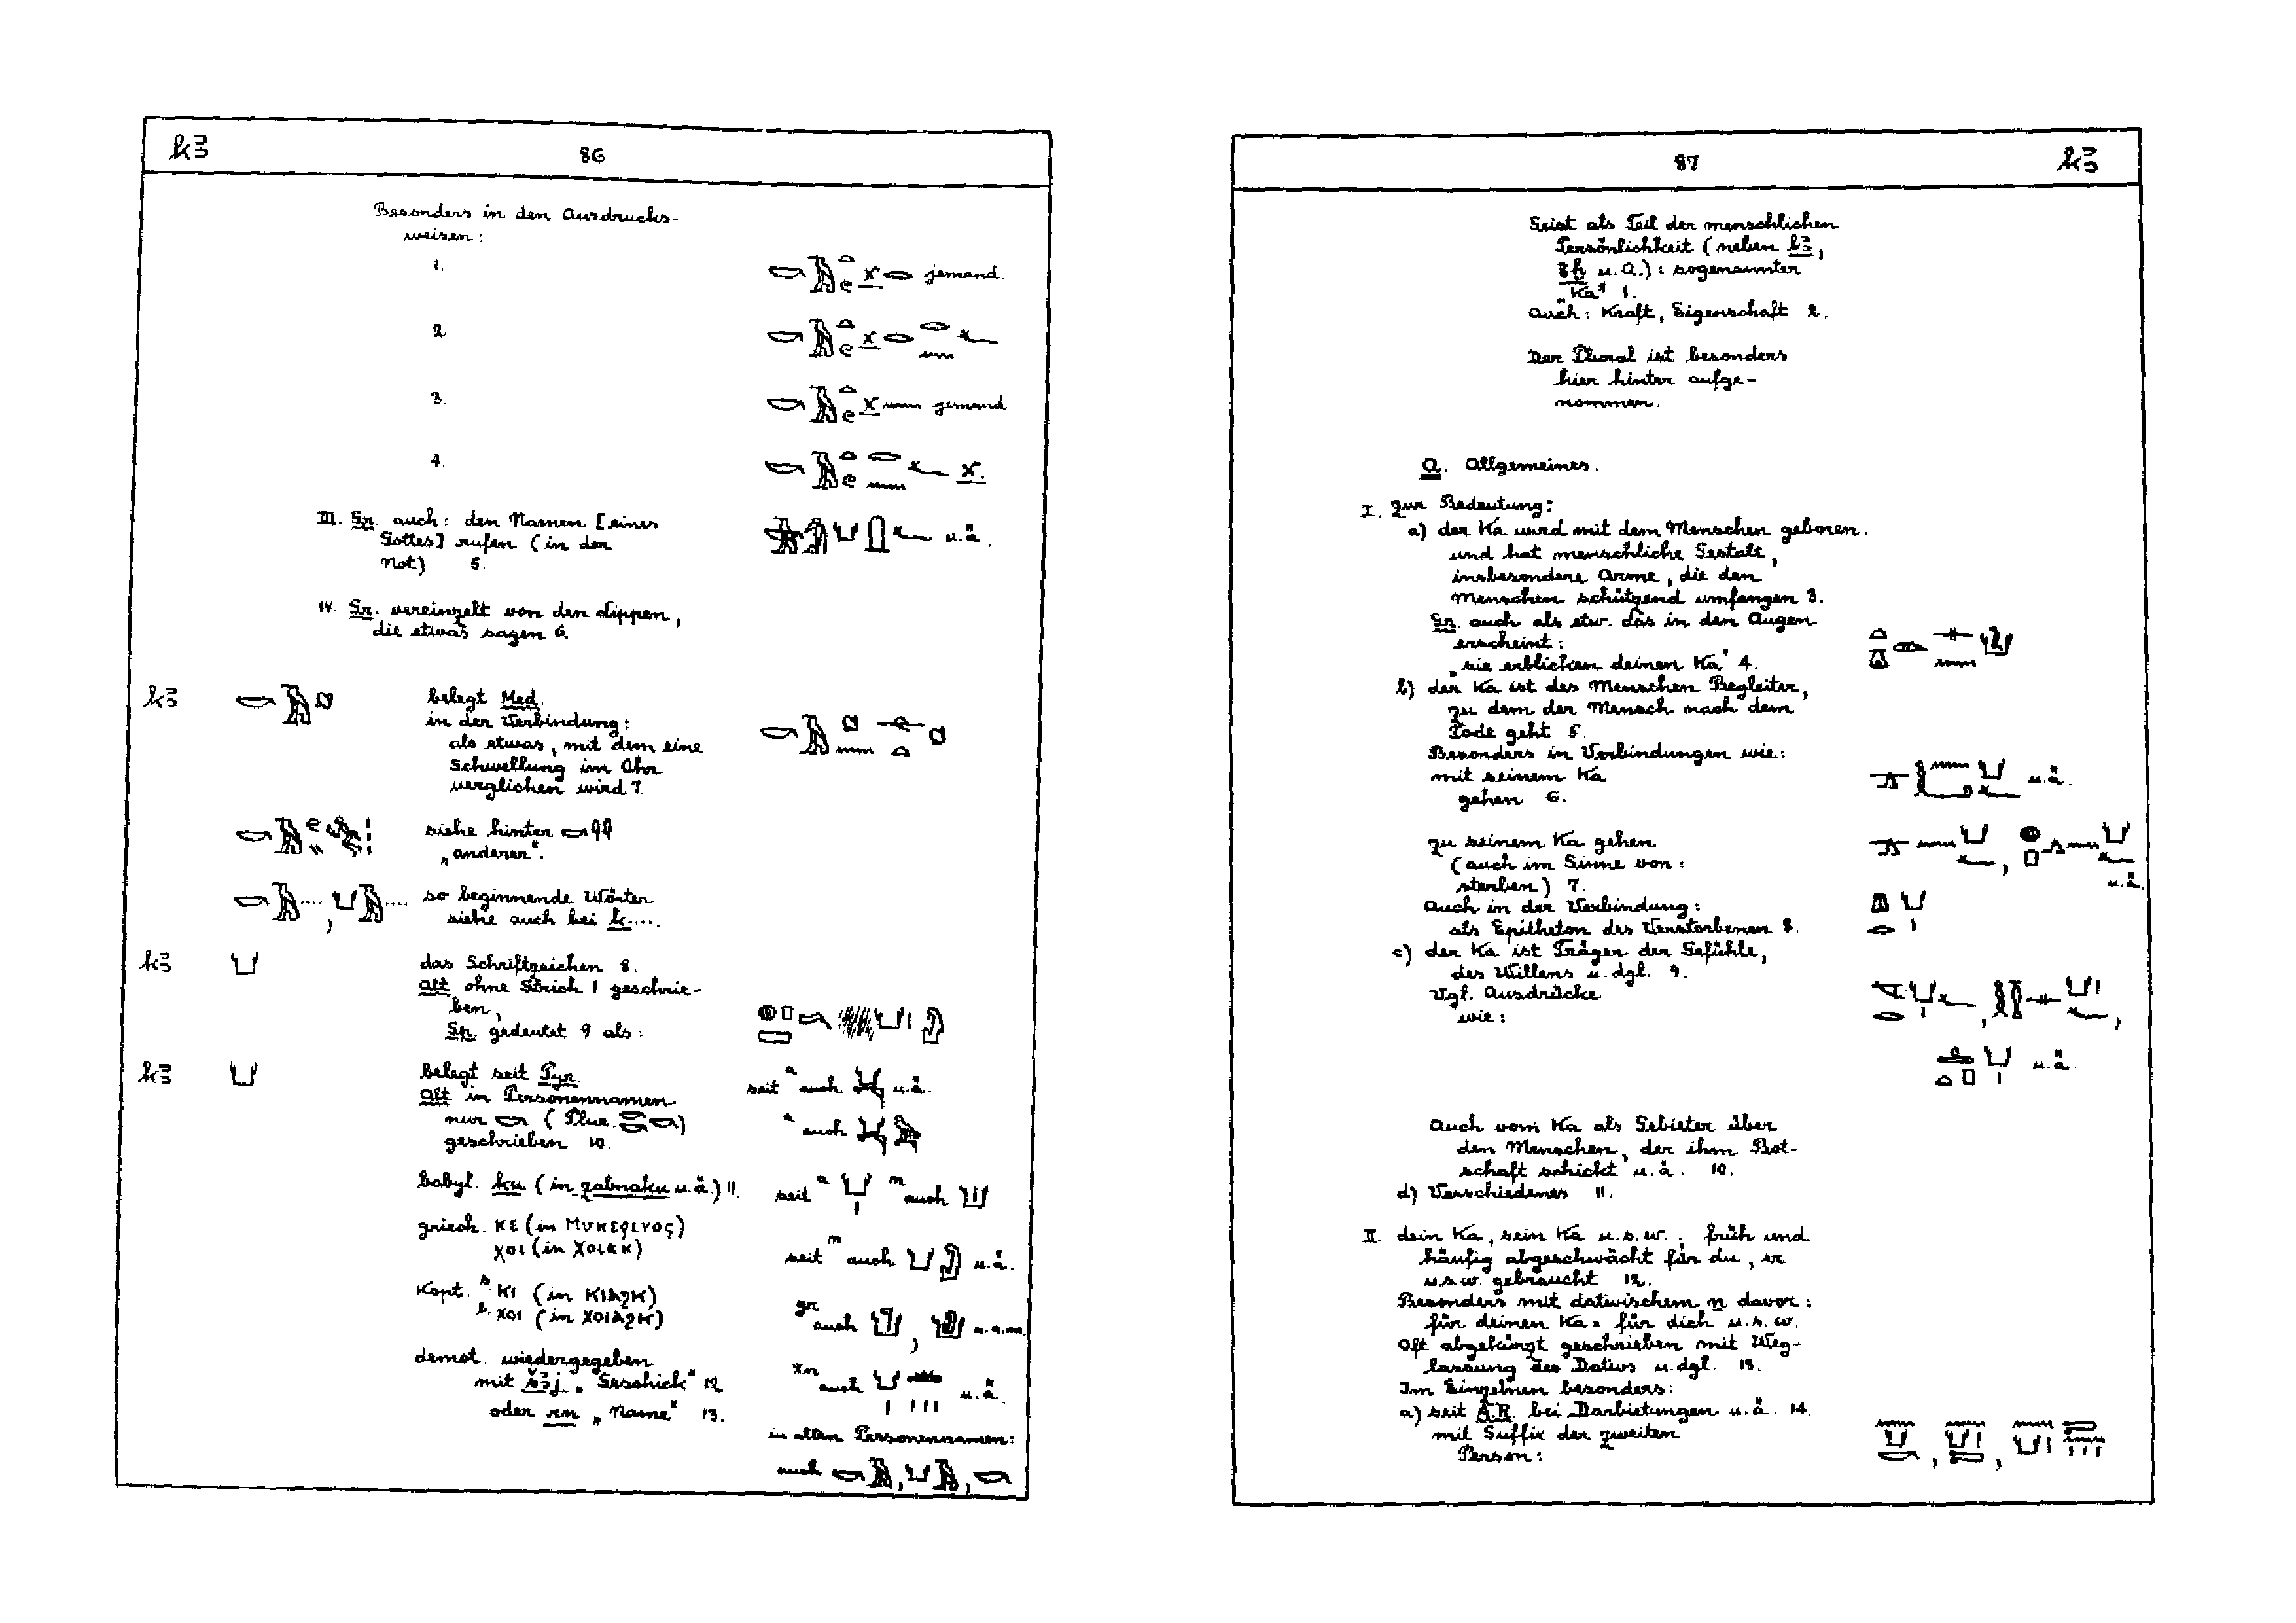 k3
86
Besonders in den Ausdrucks-
weisen:
1. jemand.
2
3. jemand
4.
III. Gr. auch: den Namen [eines
Gottes] rufen (in der
Not) 5.
u.ä.
IV. Gr. vereinzelt von den Lippen,
die etwas sagen 6.
k3
belegt Med.
in der Verbindung:
als etwas, mit dem eine
Schwellung im Ohr
verglichen wird 7.
siehe hinter
„anderer".
so beginnende Wörter
siehe auch bei k....
k3
das Schriftzeichen 8.
Alt ohne Strich I geschrie-
ben,
Sp. gedeutet 9 als:
k3
belegt seit Pyr.
Alt in Personennamen
nur (Plur. )
geschrieben 10.
seit a auch u.ä.
a auch
babyl. ku (in zabnaku u.ä.) 11.
seit a m auch
griech. κε (in Μυκερινος)
χοι (in Χοιακ)
seit m auch u.ä.
Kopt. s. ⲕⲓ (in ⲕⲓⲁϩⲕ)
b. ⲭⲟⲓ (in ⲭⲟⲓⲁϩⲕ)
gr auch , u.a.m.
demot. wiedergegeben
mit š3j „Geschick" 12
oder rn „Name" 13.
xn auch u.ä.
in alten Personennamen:
auch , ,
87
k3
Geist als Teil der menschlichen
Persönlichkeit (neben b3,
3ḫ u. A.): sogenannter
„Ka" 1.
Auch: Kraft, Eigenschaft 2.
Der Plural ist besonders
hier hinter aufge-
nommen.
A. Allgemeines.
I. Zur Bedeutung:
a) der Ka wird mit dem Menschen geboren
und hat menschliche Gestalt,
insbesondere Arme, die den
Menschen schützend umfangen 3.
Gr. auch als etw. das in den Augen
erscheint:
„sie erblicken deinen Ka" 4.
b) der Ka ist des Menschen Begleiter,
zu dem der Mensch nach dem
Tode geht 5.
Besonders in Verbindungen wie:
mit seinem Ka
gehen 6.
u.ä.
zu seinem Ka gehen
(auch im Sinne von:
sterben) 7.
u.ä.
Auch in der Verbindung:
als Epitheton des Verstorbenen 8.
c) der Ka ist Träger der Gefühle,
des Willens u. dgl. 9.
Vgl. Ausdrücke
wie:
u.ä.
Auch vom Ka als Gebieter über
den Menschen, der ihm Bot-
schaft schickt u.ä. 10.
d) Verschiedenes 11.
II. dein Ka, sein Ka u.s.w.; früh und
häufig abgeschwächt für du, er
u.s.w. gebraucht 12.
Besonders mit dativischem n davor:
für deinen Ka = für dich u.s.w.
Oft abgekürzt geschrieben mit Weg-
lassung des Dativs u. dgl. 13.
Im Einzelnen besonders:
a) seit A.R. bei Darbietungen u.ä. 14.
mit Suffix der zweiten
Person: